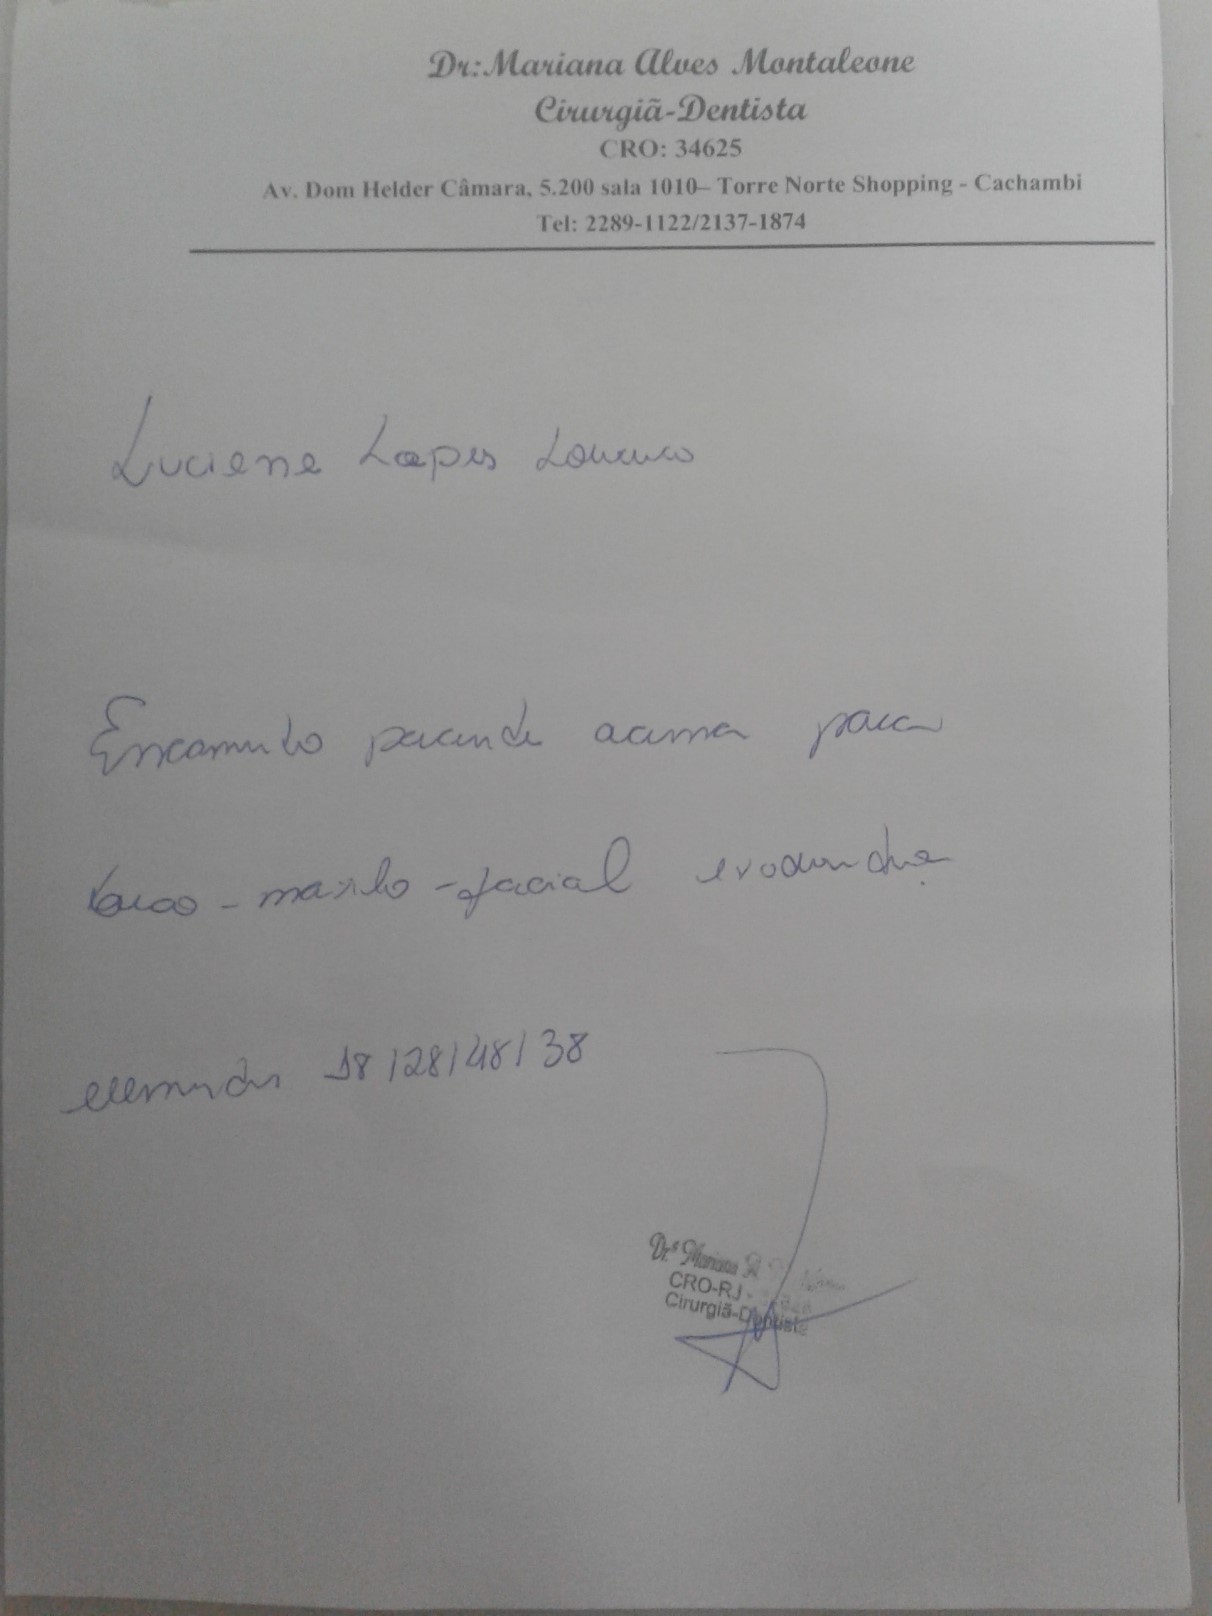 Dr:Mariana Alves Montaleone
Cirurgiã-Dentista
CRO: 34625
Av. Dom Helder Câmara, 5.200 sala 1010– Torre Norte Shopping - Cachambi
Tel: 2289-1122/2137-1874
Luciene Lopes Lourenco
Encaminho paciente acima para
buco-maxilo-facial exodontia
elementos 18/28/48/38
Drª Mariana A
CRO-RJ
Cirurgiã-Dentista